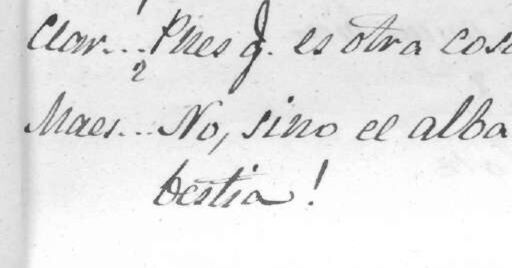 Clar... Pues q. es otra cosa
Maes... No, sino el alba
bestia!